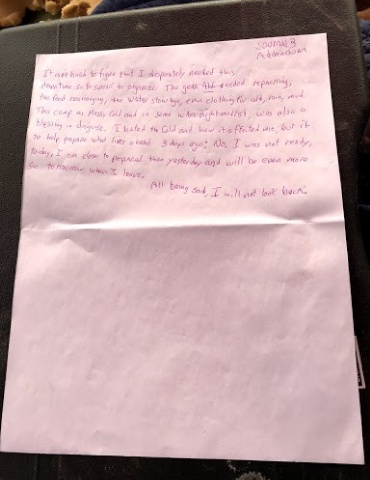 Addendum
It isn't hard to figure that I desperately needed this
downtime so to speak to organize. The gear needed repacking,
the food rearranging, the water storage, even clothing for cold, rain, and
This camp as Messy Cold and in some was also a
blessing in disguise. I hated the Cold and how it affected me, but it
to help prepare what lies ahead. 3 days ago? No, I was not ready,
today, I am close to prepared than yesterday and will be even more
so tomorrow when I leave.
All being said, I will not look back.